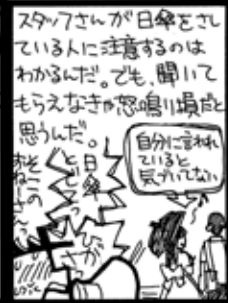 スタッフさんが日傘をさし
ている人に注意するのは
わかるんだ。でも、聞いて
もらえなきゃ怒鳴り損だと
思うんだ。
自分に言われ
ていると
気づいてない
日傘
とじろっ
そこの
おねーさんっ